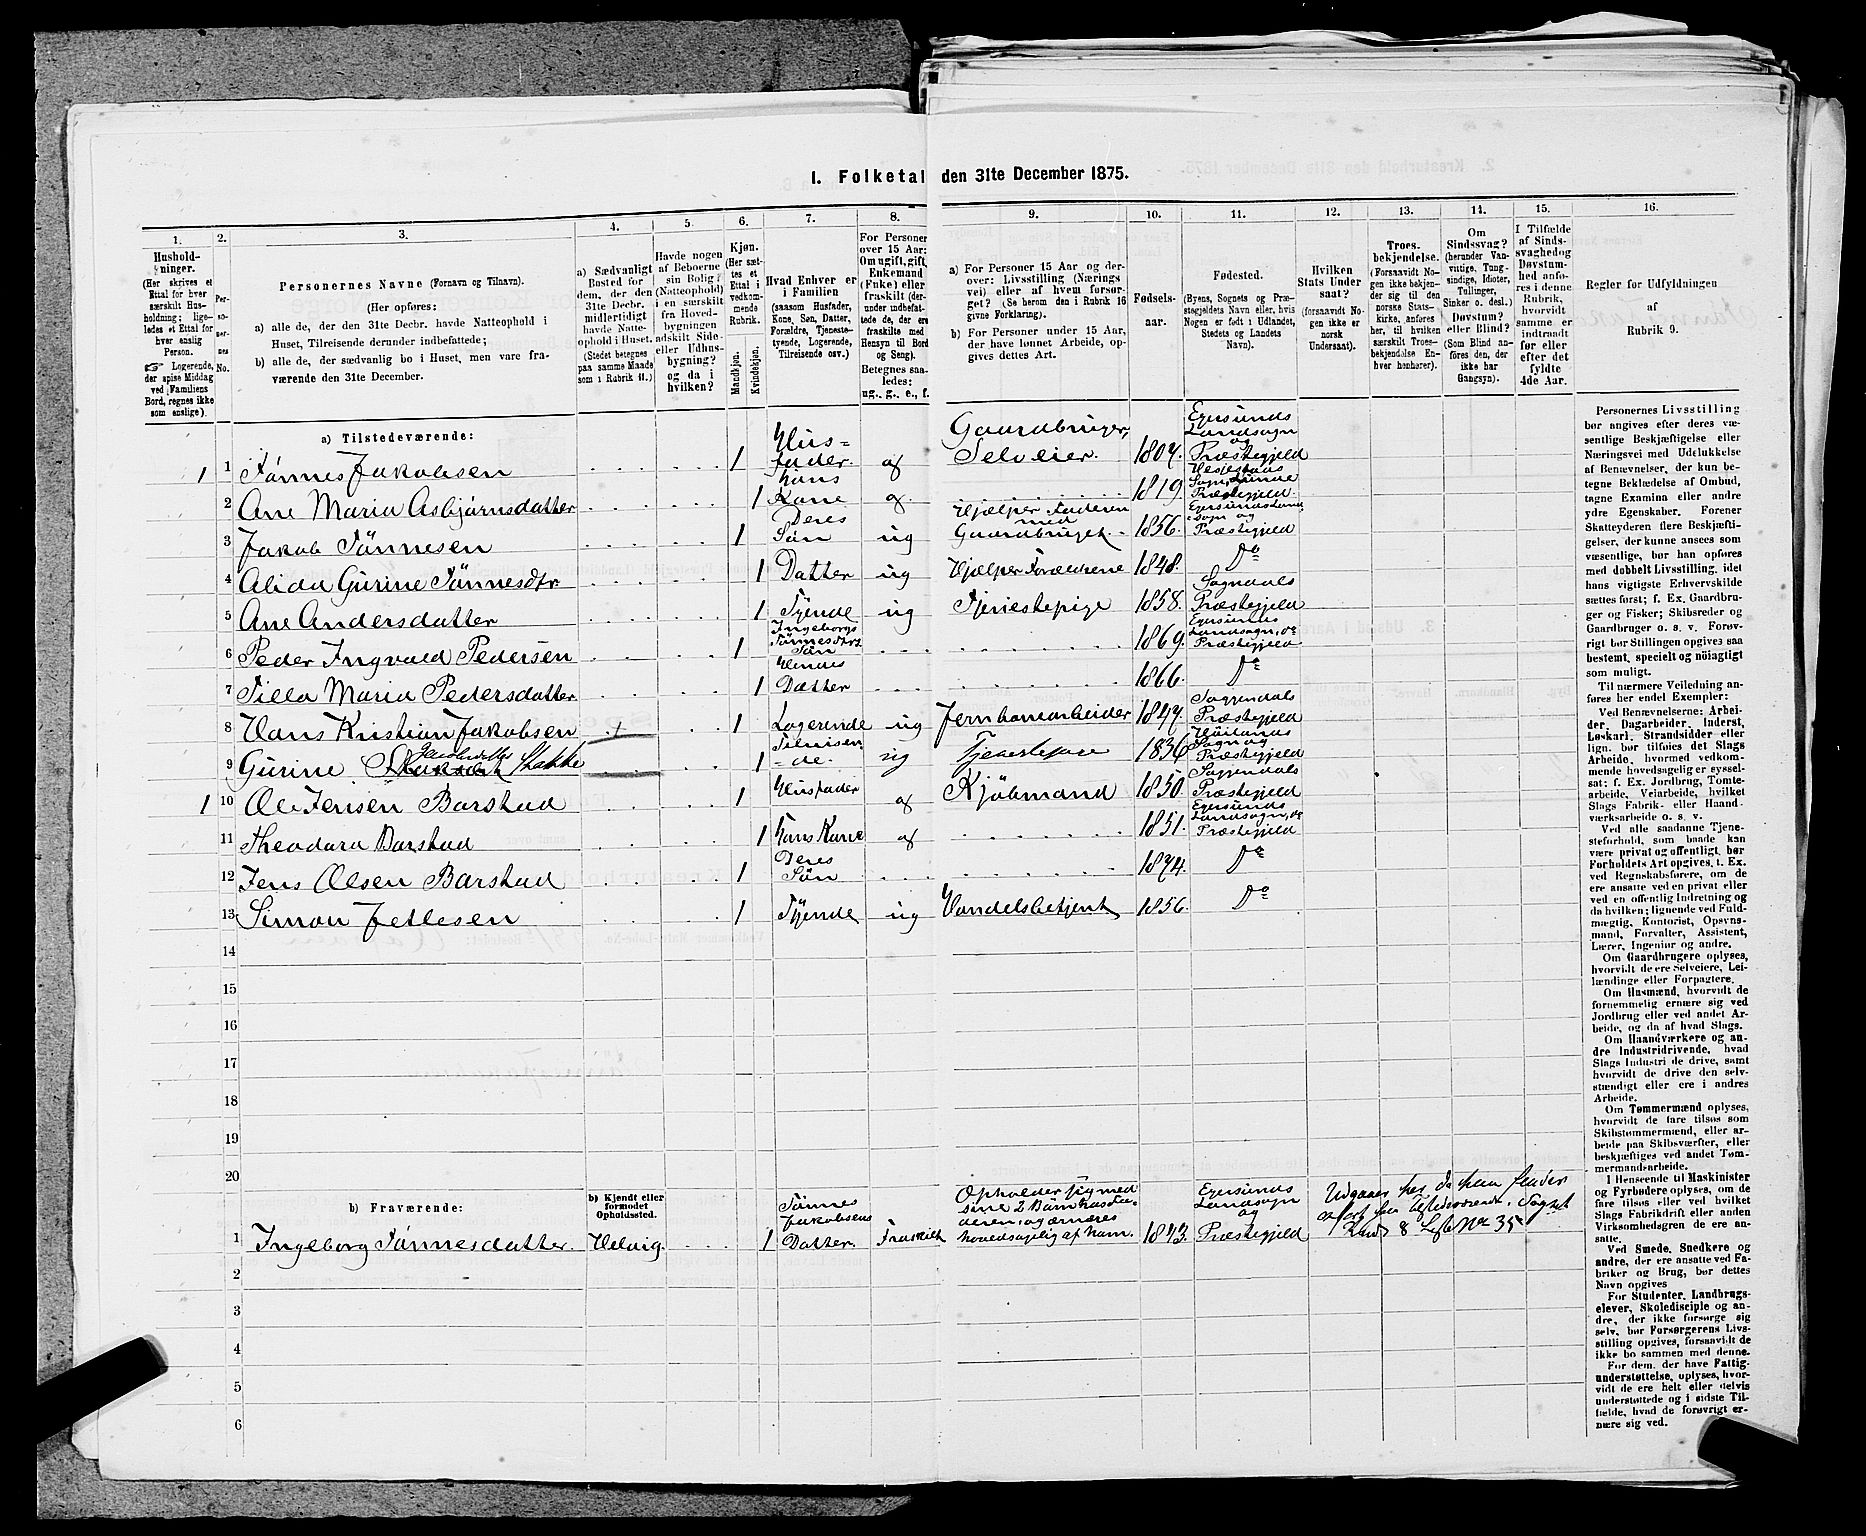 I. Folketal den 31te December 1875.
1. 2. 3. 4. 5. 6. 7. 8. 9. 10. 11. 12. 13. 14. 15. 16.
Hushold-
ninger.
(Her skrives et
Ettal for hver
særskilt Hus-
holdning; lige-
ledes et Ettal for
hver enslig
Person.
☞ Logerende,
der spise Middag
ved Familiens
Bord, regnes ikke
som enslige).
Per-
so-
ner-
nes
No.
Personernes Navne (Fornavn og Tilnavn).
(Her opføres:
a) alle de, der den 31te Decbr. havde Natteophold i
Huset, Tilreisende derunder indbefattede;
b) alle de, der sædvanlig bo i Huset, men vare fra-
værende den 31te December.
a) Sædvanligt
Bosted for
dem, der den
31te Decbr.
midlertidigt
havde Natte-
ophold i Huset.
(Stedet betegnes
paa samme Maade
som i Rubrik 11.)
Havde nogen
af Beboerne
sin Bolig
(Natteophold)
i en særskilt
fra Hoved-
bygningen
adskilt Side-
eller Udhus-
bygning?
og da i
hvilken?
Kjøn.
(Her sæt-
tes et
Ettal i
vedkom-
mende
Rubrik.
Mandkjøn.
Kvindekjøn.
Hvad Enhver er
i Familien
(saasom Husfader,
Kone, Søn, Datter,
Forældre, Tjeneste-
tyende, Logerende,
Tilreisende osv.)
For Personer
over 15 Aar:
Om ugift, gift,
Enkemand
(Enke) eller
fraskilt (der-
under indbefat-
tede de, der ere
fraskilte med
Hensyn til Bord
og Seng).
Betegnes saa-
ledes:
ug., g., e., f.
a) For Personer 15 Aar og der-
over: Livsstilling (Nærings
vei) eller af hvem forsør-
get? (Se herom den i Rubrik 16
givne Forklaring).
b) For Personer under 15 Aar,
der have lønnet Arbeide, op-
gives dettes Art.
Fødsels-
aar.
Fødested.
(Byens, Sognets og Præ-
stegjeldets Navn, eller, hvis
Nogen er født i Udlandet,
Stedets og Landets
Navn).
Hvilken
Stats Under
saat?
(forsaavidt No-
gen ikke er
norsk
Undersaat).
Troes-
bekjendelse.
(Forsaavidt No-
gen ikke bekjen-
der sig til den
norske Stats-
kirke, anføres
her, til hvilken
særskilt Troes-
bekjendelse En-
hver henhører).
Om
Sindssvag?
(herunder Van-
vittige, Tung-
sindige, Idioter,
Tullinger,
Sinker o. desl.)
Døvstum?
eller Blind?
(Som Blind an-
føres den, der
ikke har
Gangsyn).
I Tilfælde
af Sinds-
svaghed og
Døvstum-
hed anfø-
res i denne
Rubrik,
hvorvidt
samme er
indtraadt
før eller
efter det
fyldte
4de Aar.
Regler for Udfyldningen
af
Rubrik 9.
a) Tilstedeværende:
1 1 Tønnes Jakobsen 1 Hus-fader g Gaardbruger, Selveier. 1807. Egersunds Landsogn og Præstegjeld
2 Ane Maria Asbjørnsdatter 1 hans Kone g. 1819. Sogn, Lunde Præstegjeld.
3 Jakob Tønnesen 1 Deres Søn ug Hjælper Faderen med Gaardbruget. 1856. Egersunds Land-sogn og Præstegjeld
4 Alida Gurine Tønnesdtr 1 Datter ug Hjælper Forældrene 1848. Do
5 Ane Andersdatter 1 Tyende ug Tjenestepige 1858. Sogndals Præstegjeld
6 Peder Ingvald Pedersen 1 Ingeborgs Tønnesdtrs Søn 1869. Egersunds Landsogn, do Præstegjeld
7 Tilla Maria Pedersdatter 1 Hendes Datter 1866. Do
8 Hans Kristian Jakobsen + 1 Logerende ug Jernbanearbeider 1847. Soggendals Præstegjeld
9 Gurine Stakke 1 Tilreisen-de. ug 1836 Sogn og Præstegjeld
1 10 Ole Jensen Barstad 1 Husfader g Kjøbmand 1850. Soggendals Præstegjeld
11 Theodora Barstad 1 hans Kone g 1851. Egersunds Landsogn, do Præstegjeld
12 Jens Olsen Barstad 1 Deres Søn 1874. Do
13 Simon Jetlesen 1 Tyende ug Handelsbetjent 1856. Do
14
15
16
17
18
19
20
b) Fraværende:
b) Kjendt eller
formodet
Opholdssted.
1 Ingeborg Tønnesdatter. Helvig. 1 Tønnes Jakobsens Datter. Fraskilt Opholder sig med sine 2 Børn hos Faderen, og ernæres hovedsagelig af ham. 1843. Egersunds Landsogn og Præstegjeld Udgaaer her da hun findes opført som Tilstedeværende. Sognet Kreds 8 Liste No 35
2
3
4
5
6
Personernes Livsstilling
bør angives efter deres væ-
sentlige Beskjæftigelse eller
Næringsvei med Udelukkelse
af Benævnelser, der kun be-
tegne Beklædelse af Ombud,
tagne Examina eller andre
ydre Egenskaber. Forener
Skatteyderen flere Beskjæfti-
gelser, der kunne ansees som
væsentlige, bør han opføres
med dobbelt Livsstilling, idet
hans vigtigste Erhvervskilde
sættes først; f. Ex. Gaardbru-
ger og Fisker; Skibsreder og
Gaardbruger o. s. v. Forøv-
rigt bør Stillingen opgives saa
bestemt, specielt og nøiagtigt
som muligt.
Til nærmere Veiledning an-
føres her endel Exempler:
Ved Benævnelserne: Arbei-
der, Dagarbeider, Inderst,
Løskarl, Strandsidder eller
lign. bør tilføies det Slags
Arbeide, hvormed vedkom-
mende hovedsagelig er syssel-
sat; f. Ex. Jordbrug, Tomte-
arbeide, Veiarbeide, hvilket
Slags Fabrik- eller Haand-
værksarbeide o. s. v.
Ved alle saadanne Tjene-
steforhold, som baade kan
være privat og offentligt, bør
Forholdets Art opgives, t. Ex.
ved Regnskabsførere, om de
ere ansatte ved en privat eller
ved en offentlig Indretning og
da hvilken; lignende ved Fuld-
mægtig, Kontorist, Opsyns-
mand, Forvalter, Assistent,
Lærer, Ingeniør og andre.
Om Gaardbrugere oplyses,
hvorvidt de ere Selveiere, Lei-
lændinge eller Forpagtere.
Om Husmænd, hvorvidt de
fornemmelig ernære sig ved
Jordbrug eller ved andet Ar-
beide, og da af hvad Slags.
Om Haandværkere og an-
dre Industridrivende, hvad
Slags Industri de drive, samt
hvorvidt de drive den selv-
stændigt eller ere i andres
Arbeide.
Om Tømmermænd oplyses,
hvorvidt de fare tilsøs som
Skibstømmermænd, eller ar-
beide paa Skibsværfter, eller
beskjæftiges ved andet Tøm-
mermandsarbeide.
I Henseende til Maskinister
og Fyrbødere oplyses, om de
fare tilsøs eller ved hvilket
Slags Fabrikdrift eller anden
Virksomhedsgren de ere an-
satte.
Ved Smede, Snedkere og
andre, der ere ansatte ved Fa-
briker og Brug, bør dettes
Navn opgives
For Studenter, Landbrugs-
elever, Skoledisciple og an-
dre, der ikke forsørge sig
selv, bør Forsørgerens Livs-
stilling opgives, forsaavidt de
ikke bo sammen med denne.
For dem, der have Fattig-
understøttelse, oplyses, hvor-
vidt de ere helt eller delvis
understøttede og i sidste Til-
fælde, hvad de forøvrigt er-
nære sig ved.